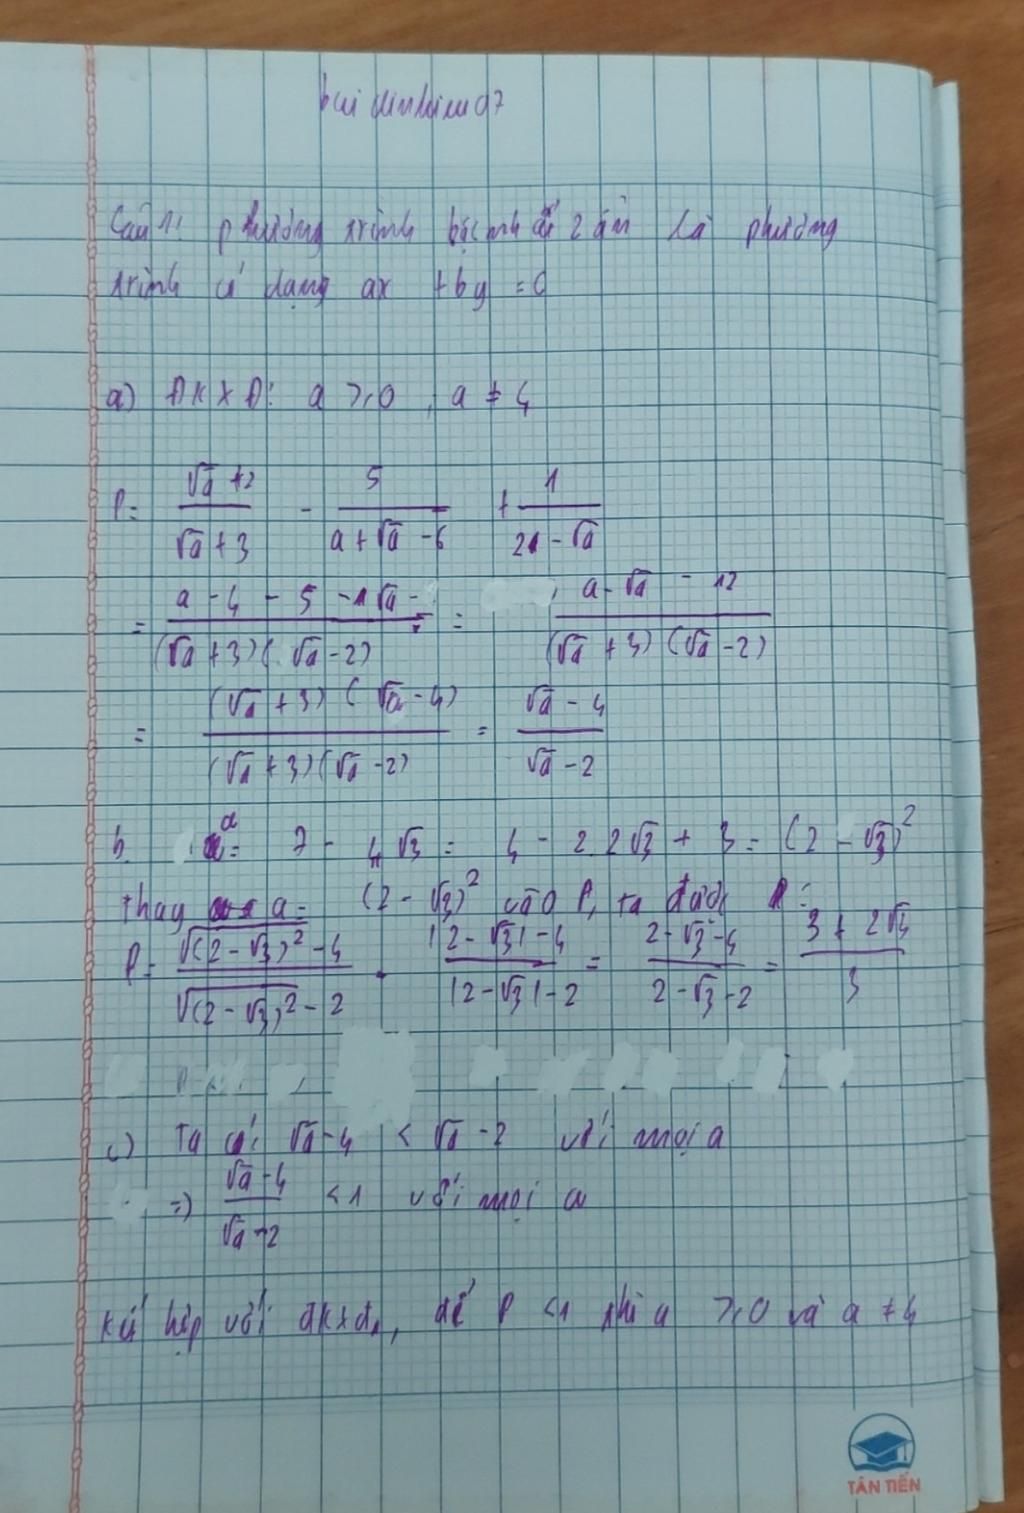 Câu 1: phương trình bậc nhất 2 ẩn là phương
trình có dạng ax + by = c
a) ĐKXĐ: a ≥ 0, a ≠ 4
P = (√a + 2)/(√a + 3) - 5/(a + √a - 6) + 1/(2 - √a)
= (a - 4 - 5 - 1√a -)/((√a + 3)(√a - 2)) = (a - √a - 12)/((√a + 3)(√a - 2))
= ((√a + 3)(√a - 4))/((√a + 3)(√a - 2)) = (√a - 4)/(√a - 2)
b. a = 7 - 4√3 = 4 - 2.2√3 + 3 = (2 - √3)²
thay a = (2 - √3)² vào P, ta được :
P = (√(2 - √3)² - 4)/(√(2 - √3)² - 2) = (|2 - √3| - 4)/(|2 - √3| - 2) = (2 - √3 - 4)/(2 - √3 - 2) = (3 + 2√3)/3
c) Ta có: √a - 4 < √a - 2 với mọi a
=> (√a - 4)/(√a - 2) < 1 với mọi a
kết hợp với đkxđ, để P < 1 khi a ≥ 0 và a ≠ 4
TÂN TIẾN